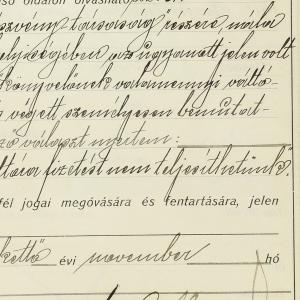 ső oldalon olvasható
részvény társaság részére, nála
helyiségében az ugyanott jelen volt
könyvelőnek valamennyi váltó
végett személyesen bemutat-
za választ nyertem:
váltóra fizetést nem teljesíthetünk".
fél jogai megóvására és fentartására, jelen
kettő évi november hó